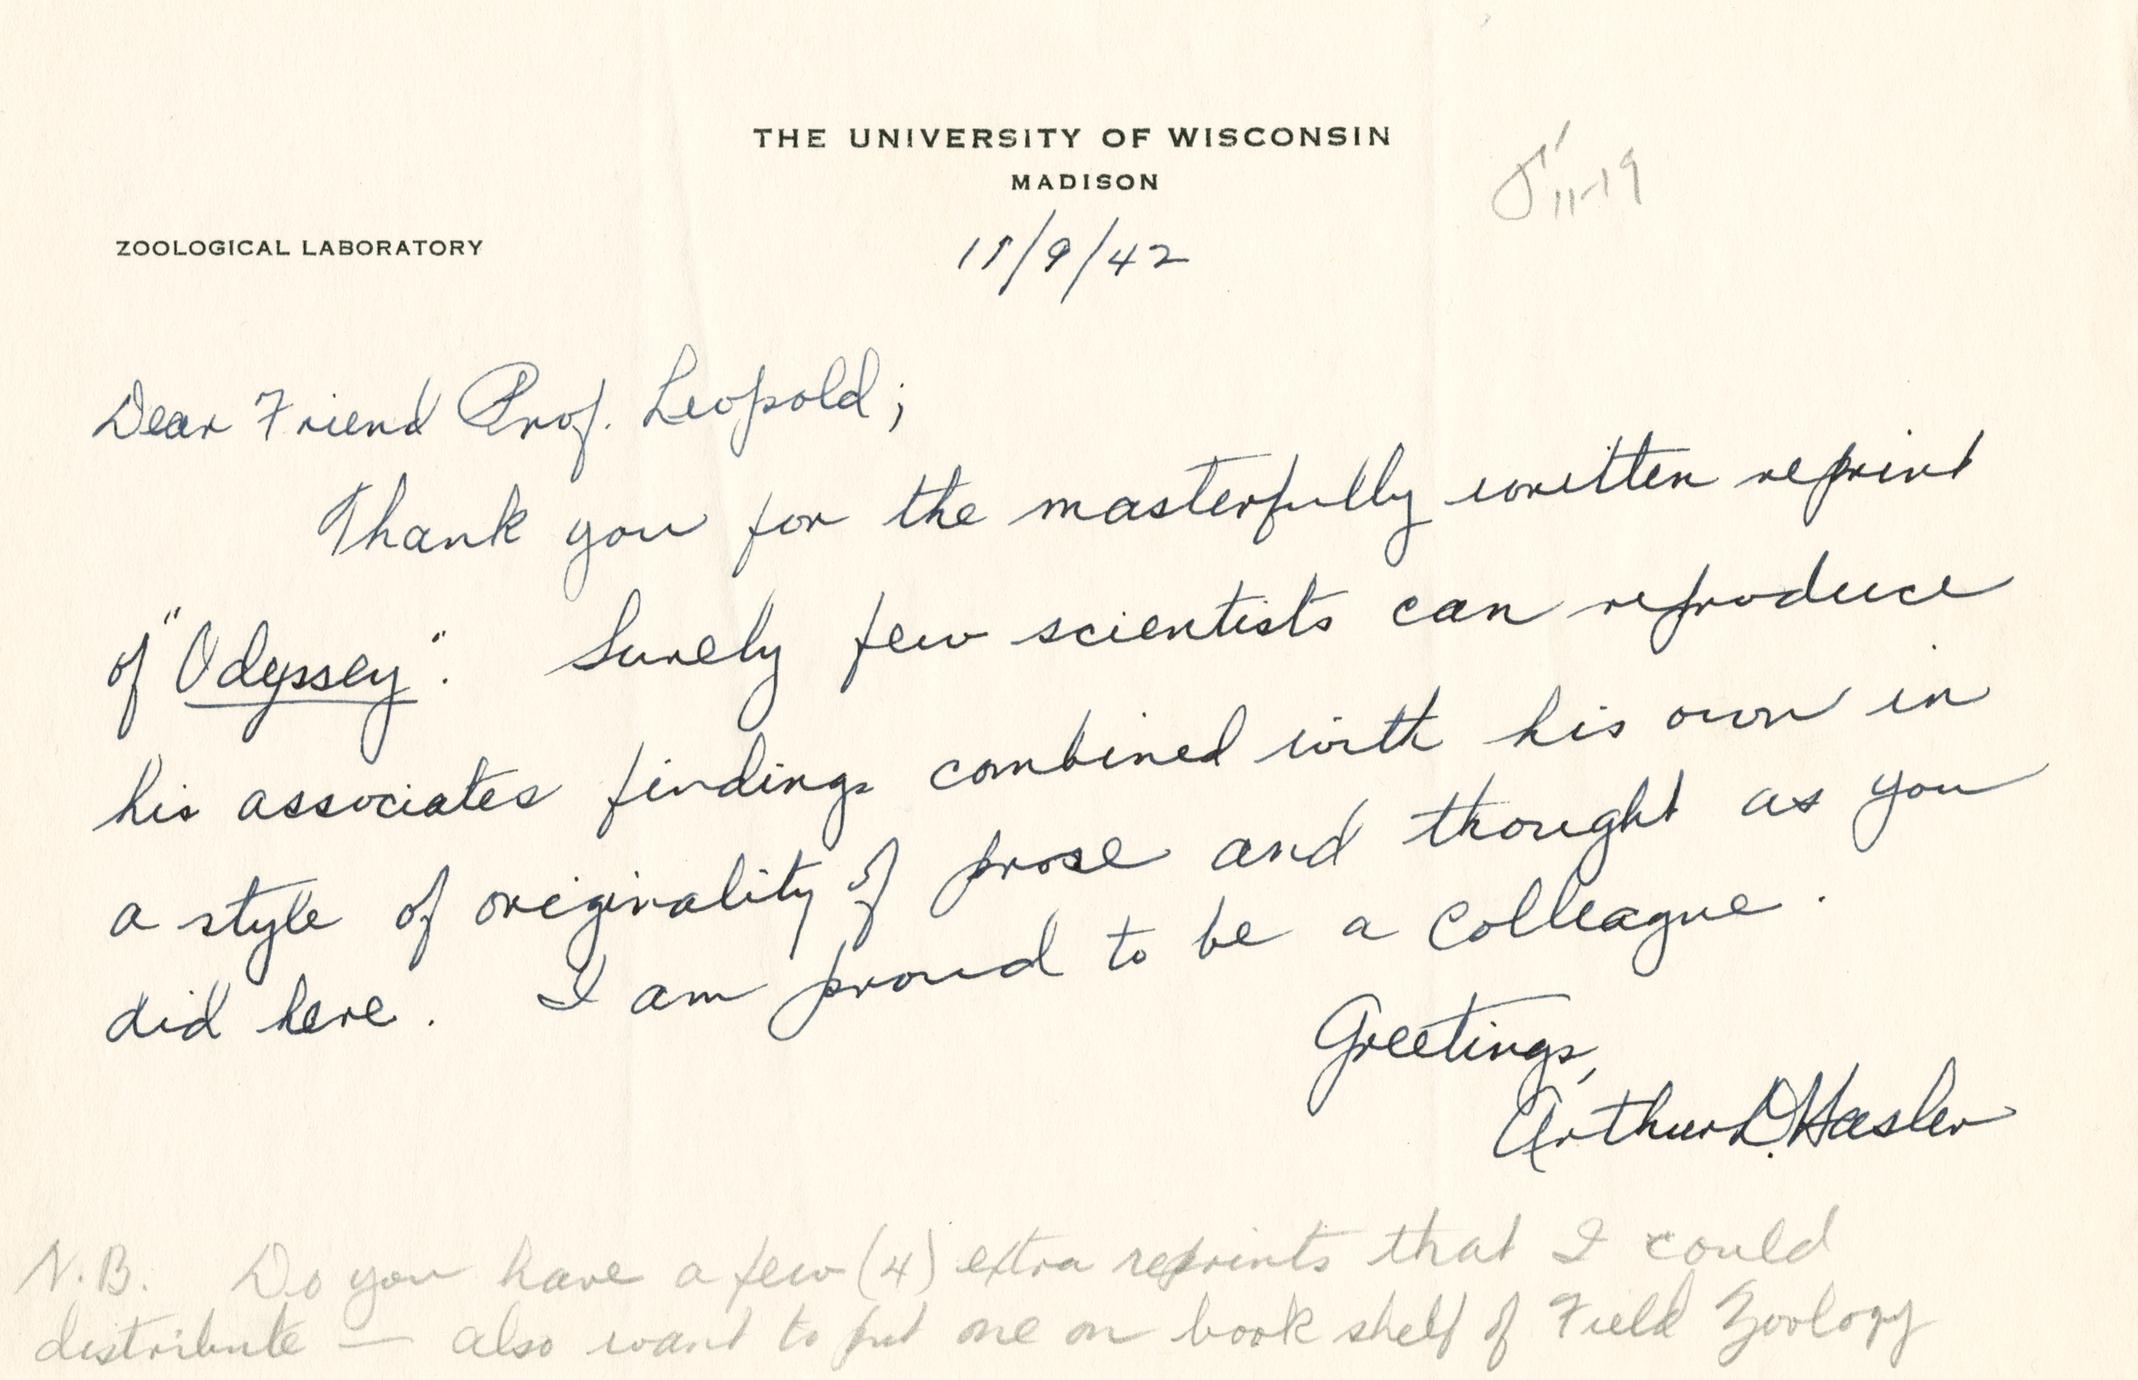 THE UNIVERSITY OF WISCONSIN
MADISON
11-19
ZOOLOGICAL LABORATORY
11/9/42
Dear Friend Prof. Leopold;
Thank you for the masterfully written reprint
of "Odyssey". Surely few scientists can reproduce
his associates findings combined with his own in
a style of originality of prose and thought as you
did here. I am proud to be a colleague.
Greetings,
Arthur D. Hasler
N.B. Do you have a few (4) extra reprints that I could
distribute — also want to put one on book shelf of Field Zoology